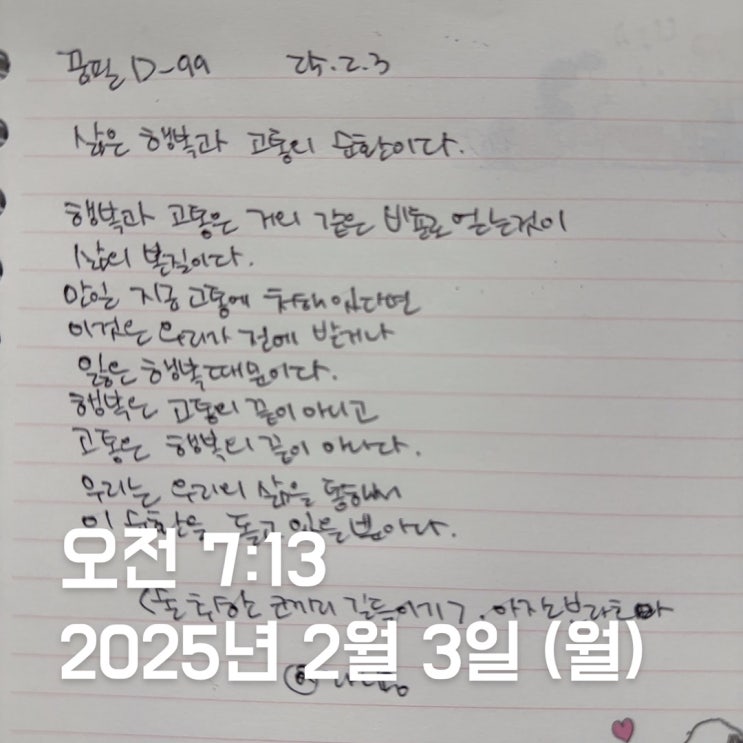 꿈필 D-99 25.2.3
삶은 행복과 고통의 순환이다.
행복과 고통은 거의 같은 비율로 얻는것이
삶의 본질이다.
만일 지금 고통에 처해있다면
이것은 우리가 전에 받거나
잃은 행복때문이다.
행복은 고통의 끝이 아니고
고통은 행복의 끝이 아니다.
우리는 우리의 삶을 통해서
이 순환을 돌고 있을 뿐이다.
오전 7:13
코끼리 길들이기 아잔브라흐마
2025년 2월 3일 (월)